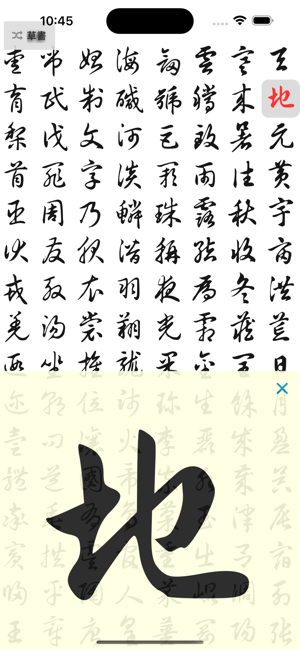 10:45
草書
天地元黃宇宙洪荒日月盈昃辰宿列張
寒來暑往秋收冬藏閏餘成歲律呂調陽
雲騰致雨露結為霜金生麗水玉出崑岡
劍號巨闕珠稱夜光果珍李柰菜重芥薑
海鹹河淡鱗潛羽翔龍師火帝鳥官人皇
始制文字乃服衣裳推位讓國有虞陶唐
弔民伐罪周發殷湯坐朝問道垂拱平章
愛育黎首臣伏戎羌遐邇壹體率賓歸王
地